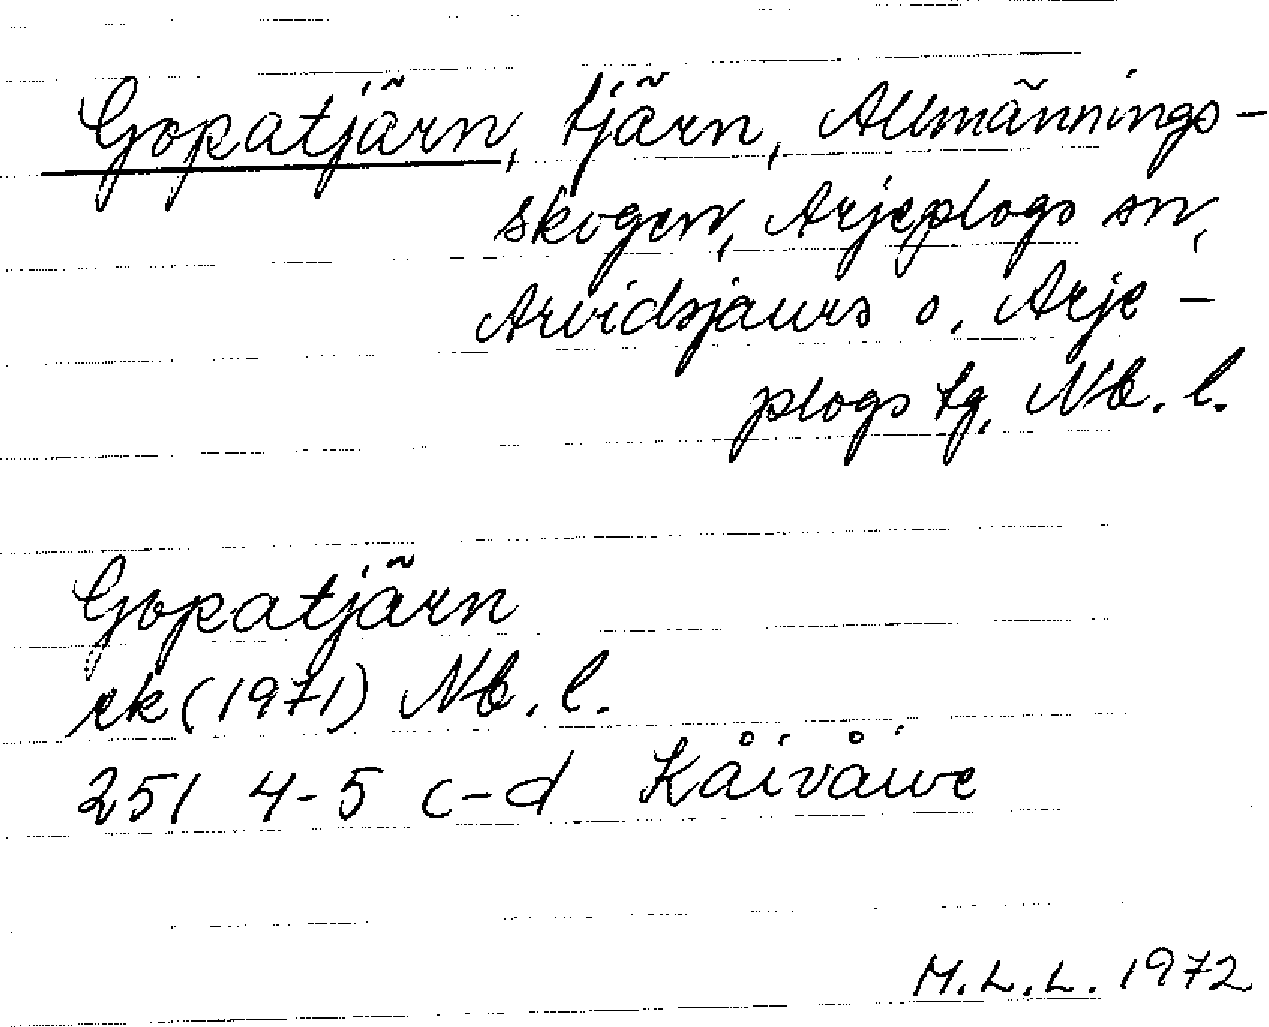 Gopatjärn, tjärn, Allmännings-
skogen, Arjeplogs sn,
Arvidsjaurs o. Arje-
plogs tg, Nb. l.
Gopatjärn
ek (1971) Nb. l.
251 4-5 c-d Kåivåive
M.L.L. 1972